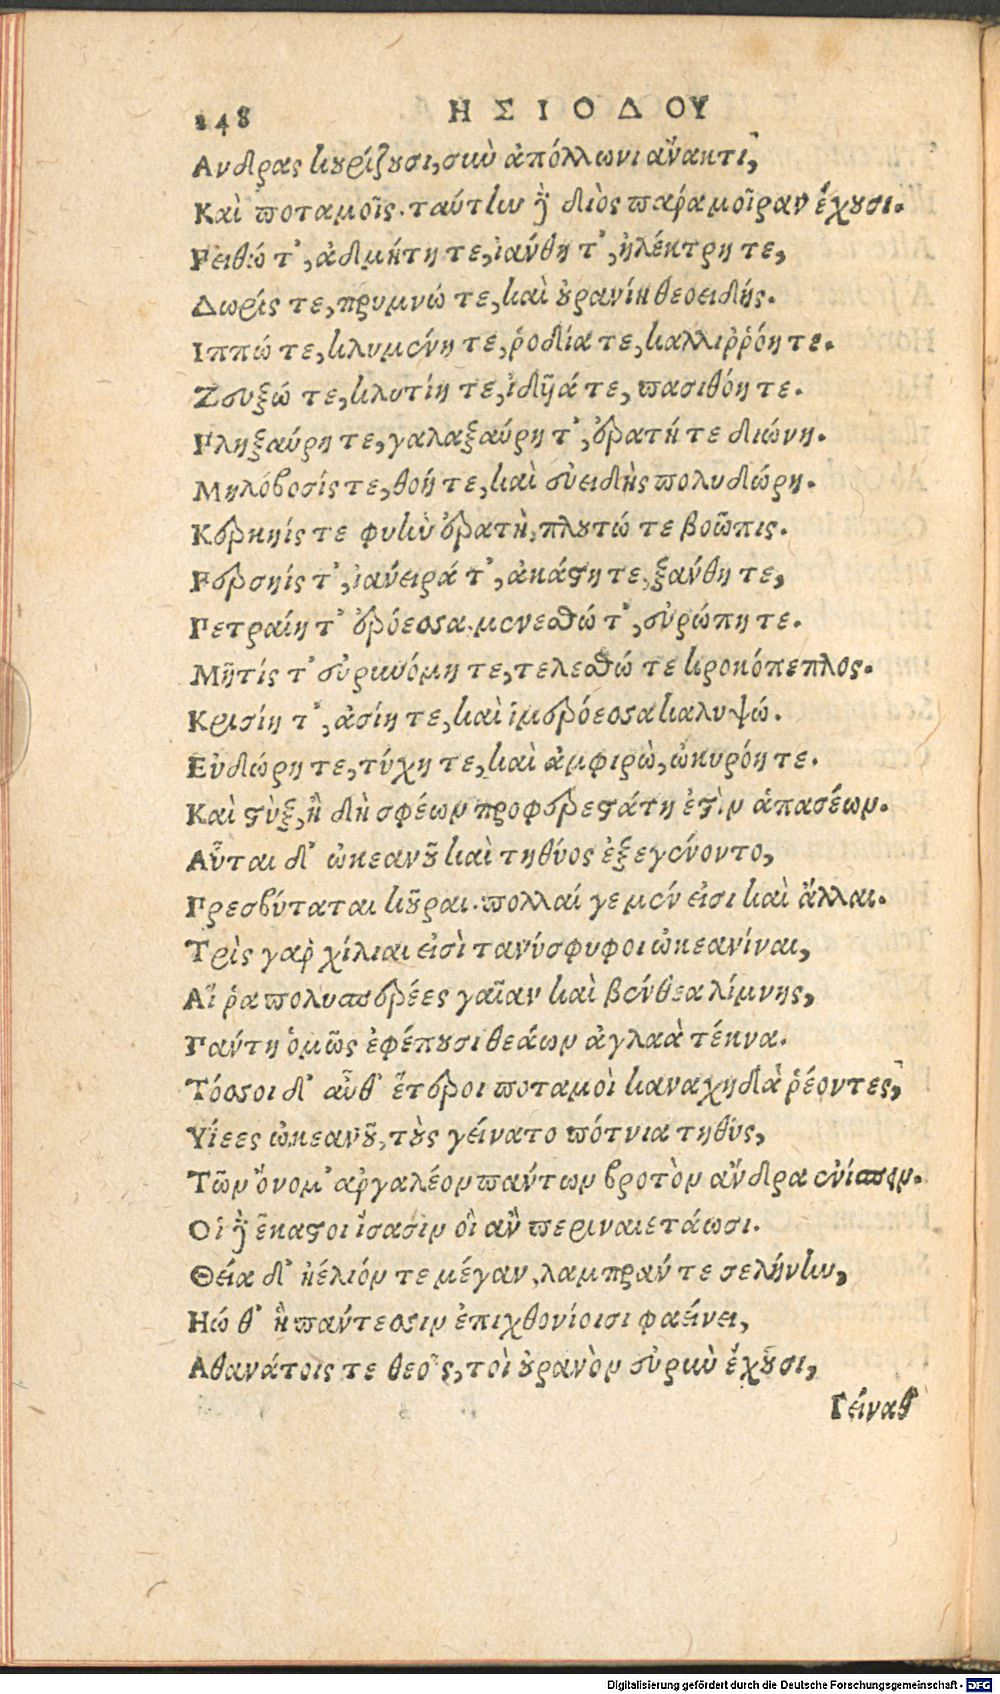 248 ΗΣΙΟΔΟΥ
Ανδρας κουρίζουσι, σὺν ἀπόλλωνι ἄνακτι,
Καὶ ποταμοῖς. ταύτην δὲ διὸς πάρα μοῖραν ἔχουσι.
Πειθώ τ', ἀδμήτη τε, ἰάνθη τ', ἠλέκτρη τε,
Δωρίς τε, πρυμνώ τε, καὶ οὐρανίη θεοειδής.
Ιππώ τε, κλυμένη τε, ῥοδία τε, καλλιῤῥόη τε.
Ζευξώ τε, κλυτίη τε, ἰδῦά τε, πασιθόη τε.
Πληξαύρη τε, γαλαξαύρη τ', ἐρατή τε διώνη.
Μηλόβοσίς τε, θοή τε, καὶ εὐειδὴς πολυδώρη.
Κερκηίς τε φυὴν ἐρατὴ, πλουτώ τε βοῶπις.
Περσηίς τ', ἰάνειρά τ', ἀκάστη τε, ξάνθη τε,
Πετραίη τ' ἐρόεσσα. μενεσθώ τ', εὐρώπη τε.
Μῆτίς τ' εὐρυνόμη τε, τελεσθώ τε κροκόπεπλος.
Κρισίη τ', ἀσίη τε, καὶ ἱμερόεσσα καλυψώ.
Εὐδώρη τε, τύχη τε, καὶ ἀμφιρὼ, ὠκυρόη τε.
Καὶ στὺξ, ἣ δὴ σφέων προφερεστάτη ἐστὶν ἁπασέων.
Αὗται δ' ὠκεανοῦ καὶ τηθύος ἐξεγένοντο,
Πρεσβύταται κοῦραι. πολλαί γε μέν εἰσι καὶ ἄλλαι.
Τρὶς γὰρ χίλιαι εἰσὶ τανύσφυφοι ὠκεανίναι,
Αἵ ῥα πολυσπερέες γαῖαν καὶ βένθεα λίμνης,
Πάντη ὁμῶς ἐφέπουσι θεάων ἀγλαὰ τέκνα.
Τόσσοι δ' αὖθ' ἕτεροι ποταμοὶ καναχηδὰ ῥέοντες,
Υἱέες ὠκεανοῦ, τοὺς γείνατο πότνια τηθύς,
Τῶν ὄνομ' ἀργαλέον πάντων βροτὸν ἄνδρα ἐνίσπειν.
Οἱ δὲ ἕκαστοι ἴσασιν οἳ ἂν περιναιετάωσι.
Θεία δ' ἠέλιόν τε μέγαν, λαμπράν τε σελήνην,
Ηώ θ' ἣ πάντεσσιν ἐπιχθονίοισι φαείνει,
Αθανάτοις τε θεοῖς, τοὶ οὐρανὸν εὐρὺν ἔχουσι,
Γείναθ'
Digitalisierung gefördert durch die Deutsche Forschungsgemeinschaft - DFG